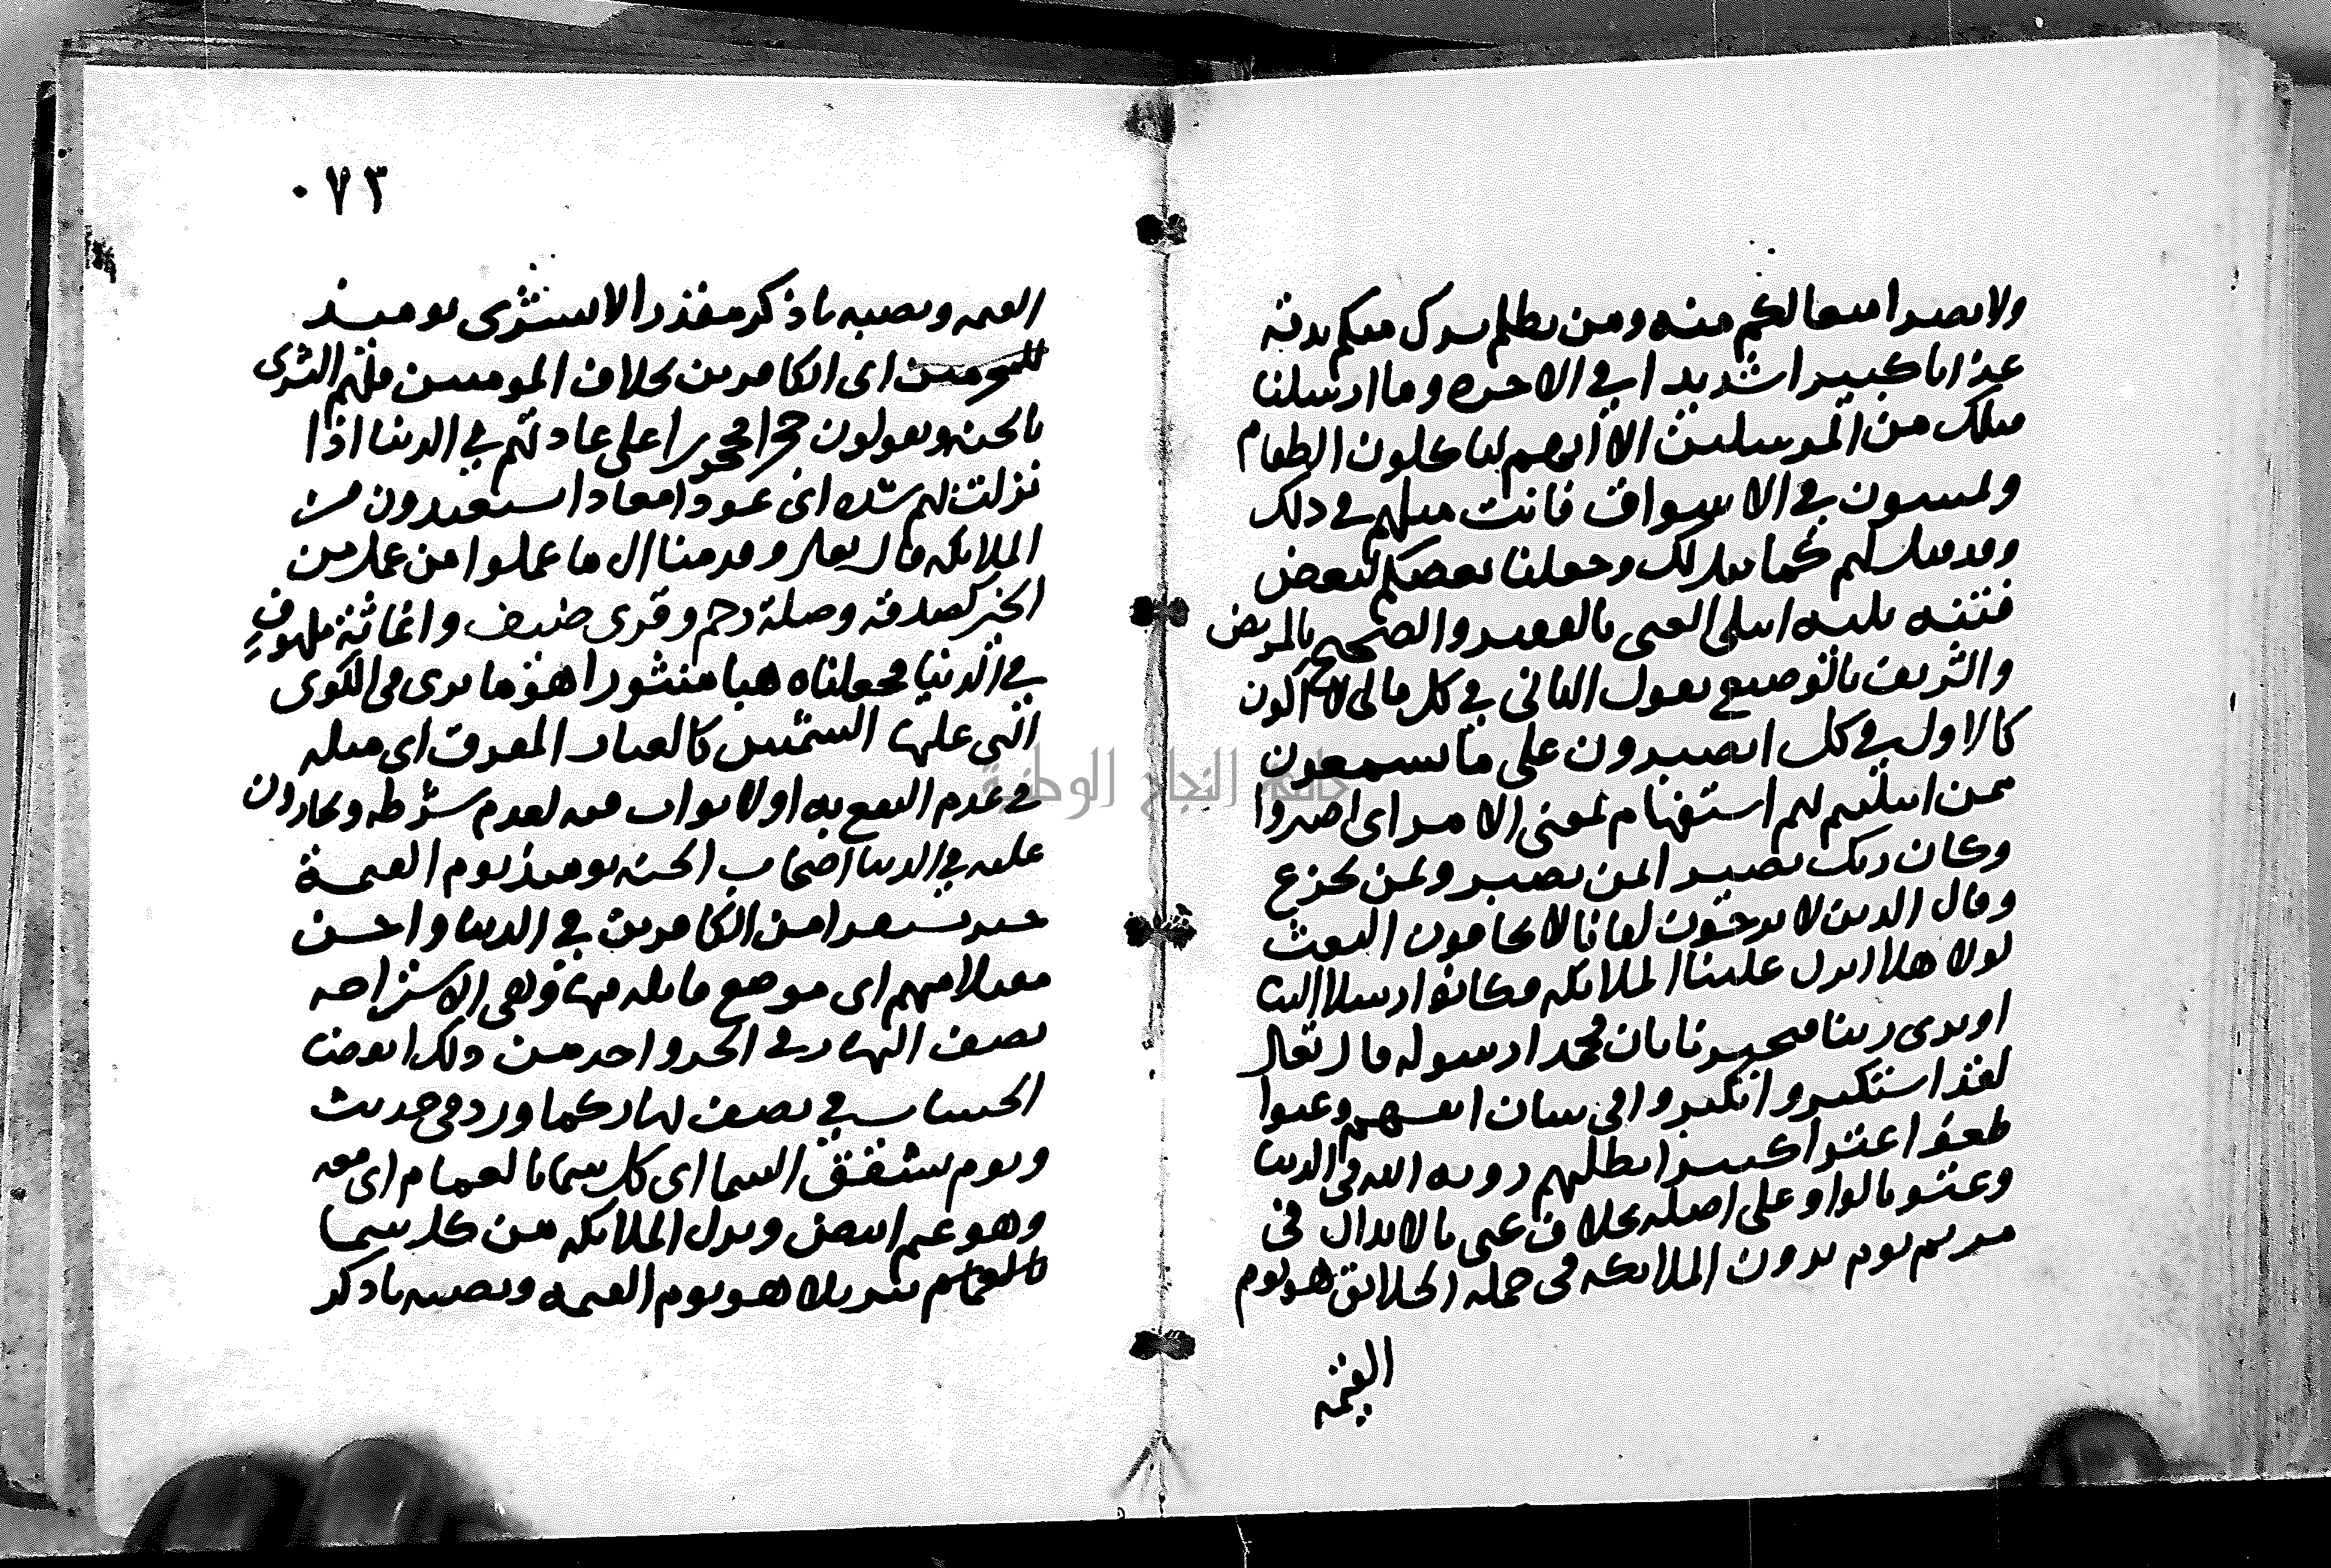 ولا نصرا منعا لكم منه ومن يظلم يشرك منكم نذقه
عذابا كبيرا شديدا في الاخره وما ارسلنا
قبلك من المرسلين الا انهم لياكلون الطعام
ويمشون في الاسواق فانت مثلهم في ذلك
وقد قيل لهم كما قيل لك وجعلنا بعضكم لبعض
فتنه بليه ابتلى الغنى بالفقير والصحيح بالمريض
والشريف بالوضيع يقول الثاني في كل مالي لا اكون
كالاول في كل اتصبرون على ما تسمعون
ممن ابتليتم بهم استفهام بمعنى الامر اى اصبروا
وكان ربك بصيرا لمن يصبر ولمن يجزع
وقال الذين لا يرجون لقانا لا يخافون البعث
لولا هلا انزل علينا الملايكه فكانوا رسلا الينا
او نرى ربنا فيخبرنا بان محمدا رسوله قال تعالى
لقد استكبروا تكبروا في شان انفسهم وعتوا
طغوا عتوا كبيرا بطلبهم رويه الله في الدنيا
وعتو بالواو على اصله بخلاف عتى بالابدال في
مريم يوم يرون الملايكه في جمله الخلايق هو يوم
القيمه
٠٧٣
القيمه ونصبه باذكر مقدرا لا بشرى يوميذ
للمجرمين اى الكافرين بخلاف المومنين فلهم البشرى
بالجنه ويقولون حجرا محجورا على عادتهم في الدنيا اذا
نزلت بهم شده اى عوذا معاذا يستعيذون من
الملايكه قال تعالى وقدمنا الى ما عملوا من عمل من
الخير كصدقه وصلة رحم وقرى ضيف واغاثة ملهوف
في الدنيا فجعلناه هبا منثورا هو ما يرى في الكوى
التى عليها الشمس كالغبار المفرق اى مثله
في عدم النفع به اذ لا ثواب فيه لعدم شرطه ويجازون
عليه في الدنيا اصحاب الجنه يوميذ يوم القيمة
خير مستقرا من الكافرين في الدنيا واحسن
مقيلا منهم اى موضع قايله فيها وهى الاستراحه
نصف النهار في الحر واخذ من ذلك انقضا
الحساب في نصف نهار كما ورد في حديث
ويوم تشقق السما اى كل سما بالغمام اى معه
وهو غيم ابيض ونزل الملايكه من كل سما
تنزيلا هو يوم القيمه ونصبه باذكر
جامعة النجاح الوطنية